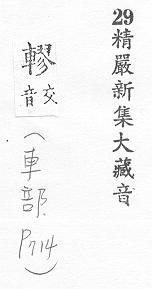 29精嚴新集大藏音
轇音交
(車部P714)